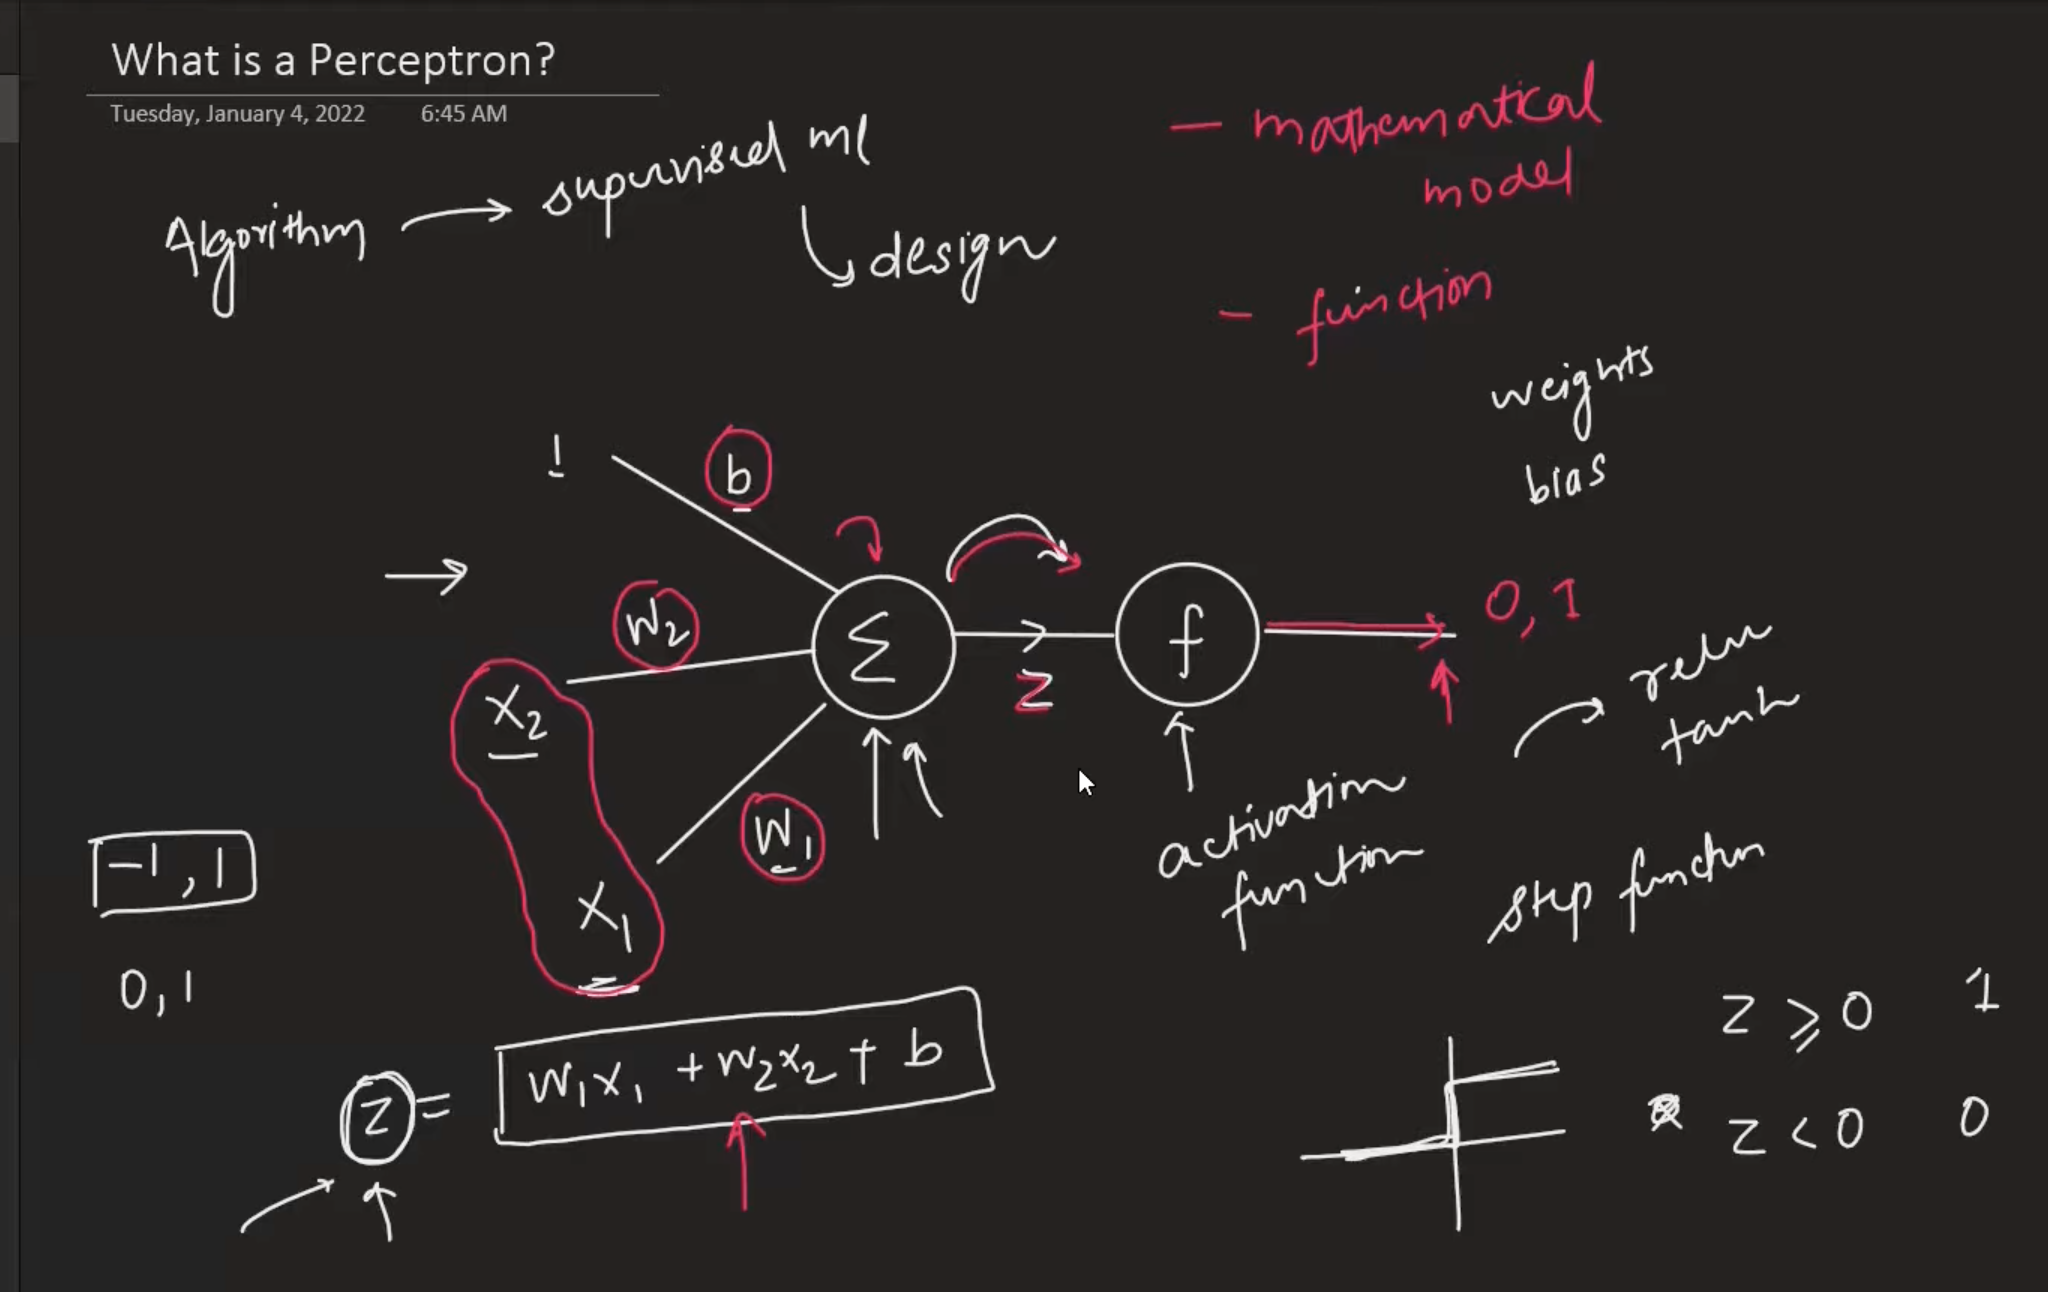 What is a Perceptron?
Tuesday, January 4, 2022 6:45 AM
Algorithm → supervised ml
↳ design
— mathematical
model
- function
weights
bias
1
b
W2
X2
W1
X1
Σ
Z
f
0, 1
relu
tanh
activation
function
step function
-1, 1
0, 1
Z = W1X1 + W2X2 + b
Z ⩾ 0 1
Z < 0 0